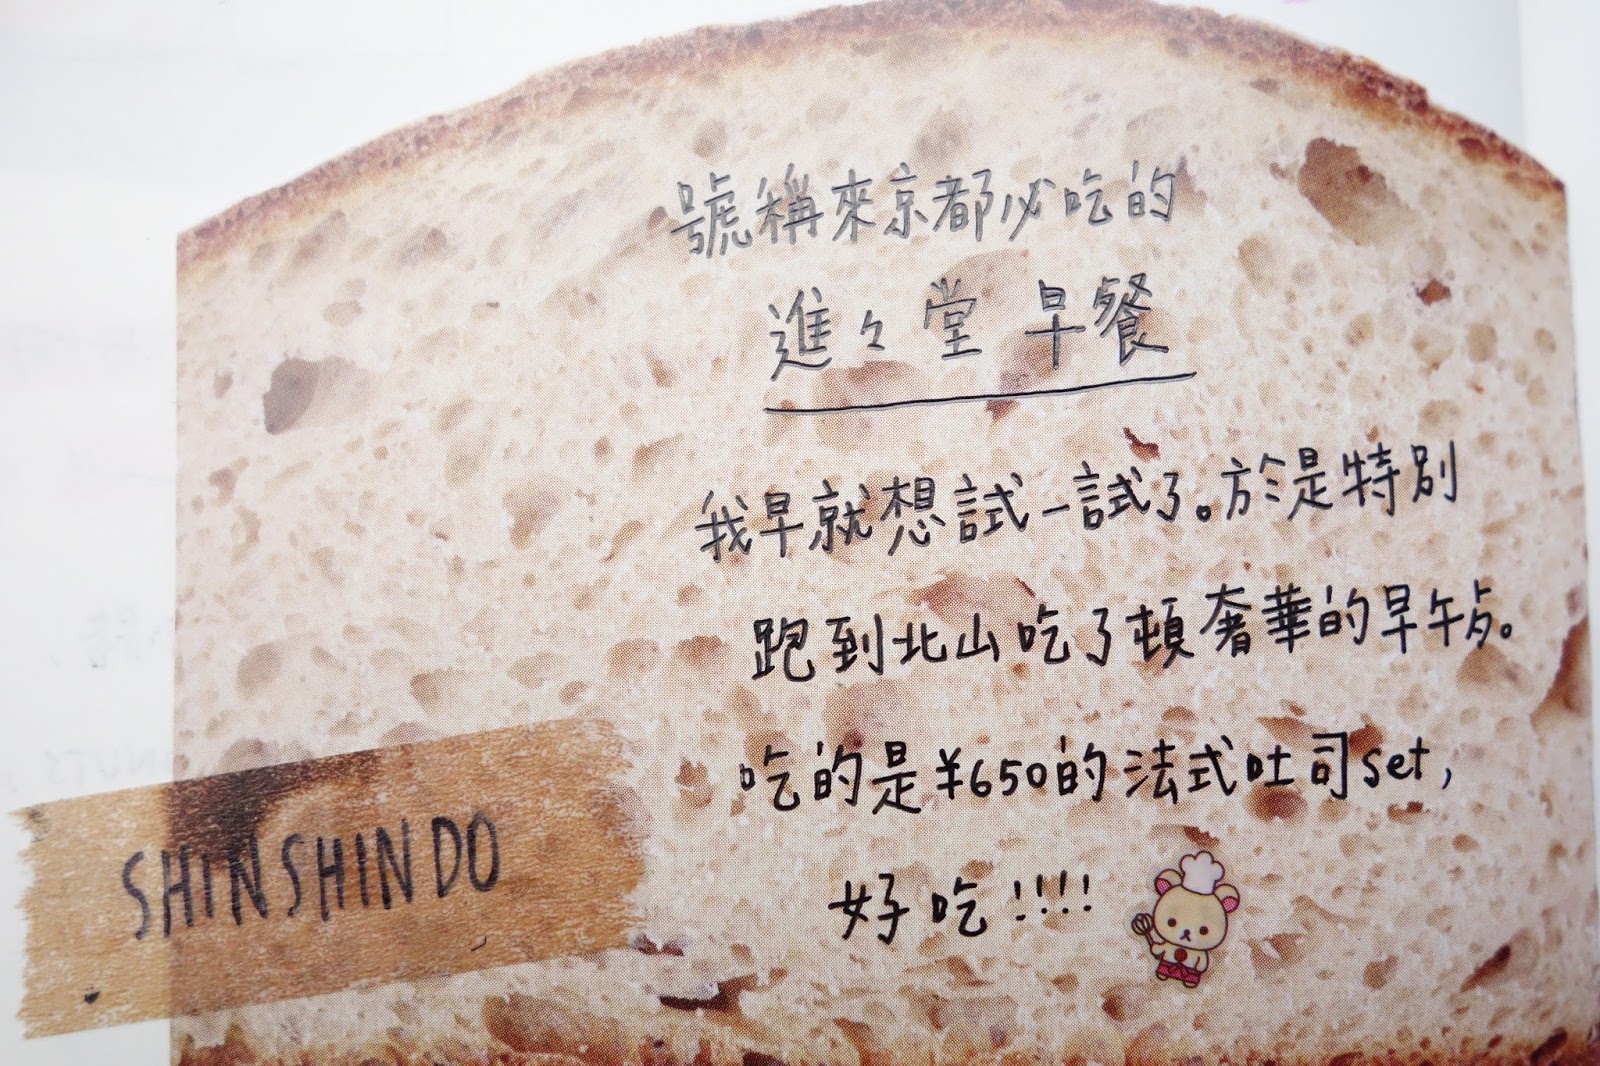 號稱來京都必吃的
進々堂 早餐
我早就想試一試了。於是特別
跑到北山吃了頓奢華的早午歺。
吃的是¥650的法式吐司set,
好吃!!!!
SHINSHINDO